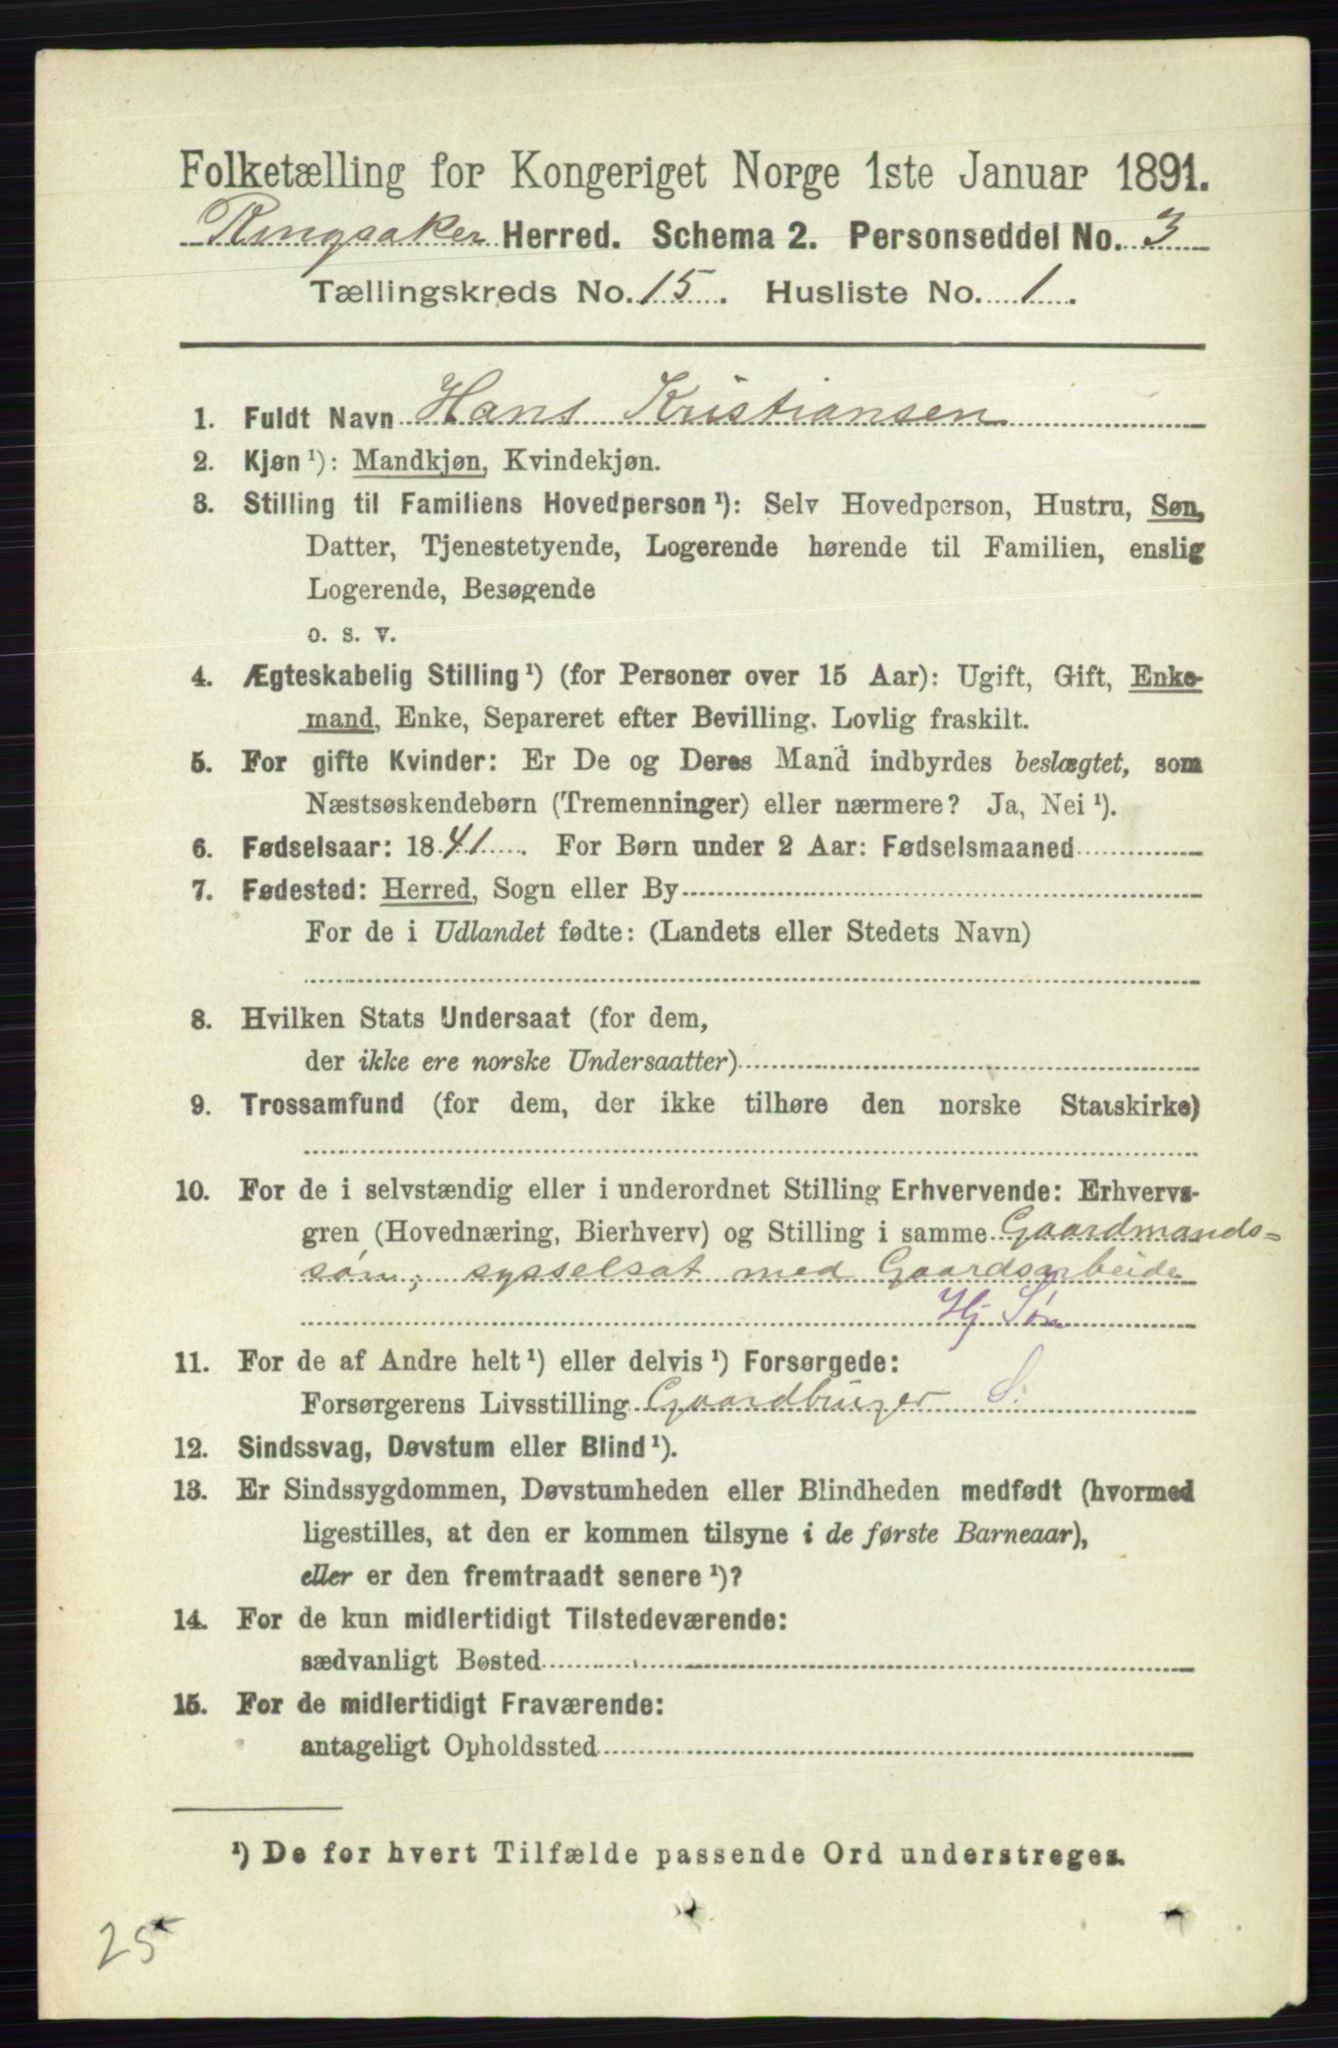 Folketælling for Kongeriget Norge 1ste Januar 1891.
Ringsaker Herred. Schema 2. Personseddel No. 3
Tællingskreds No. 15. Husliste No. 1.
1. Fuldt Navn Hans Kristiansen
2. Kjøn ¹): Mandkjøn, Kvindekjøn.
3. Stilling til Familiens Hovedperson ¹): Selv Hovedperson, Hustru, Søn,
Datter, Tjenestetyende, Logerende hørende til Familien, enslig
Logerende, Besøgende
o. s. v.
4. Ægteskabelig Stilling ¹) (for Personer over 15 Aar): Ugift, Gift, Enke-
mand, Enke, Separeret efter Bevilling. Lovlig fraskilt.
5. For gifte Kvinder: Er De og Deres Mand indbyrdes beslægtet, som
Næstsøskendebørn (Tremenninger) eller nærmere? Ja, Nei ¹).
6. Fødselsaar: 1841. For Børn under 2 Aar: Fødselsmaaned
7. Fødested: Herred, Sogn eller By
For de i Udlandet fødte: (Landets eller Stedets Navn)
8. Hvilken Stats Undersaat (for dem,
der ikke ere norske Undersaatter)
9. Trossamfund (for dem, der ikke tilhøre den norske Statskirke)
10. For de i selvstændig eller i underordnet Stilling Erhvervende: Erhvervs-
gren (Hovednæring, Bierhverv) og Stilling i samme Gaardmands=
søn, sysselsat med Gaardsarbeide
Hj Søn
11. For de af Andre helt ¹) eller delvis ¹) Forsørgede:
Forsørgerens Livsstilling Gaardbruger S.
12. Sindssvag, Døvstum eller Blind ¹).
13. Er Sindssygdommen, Døvstumheden eller Blindheden medfødt (hvormed
ligestilles, at den er kommen tilsyne i de første Barneaar),
eller er den fremtraadt senere ¹)?
14. For de kun midlertidigt Tilstedeværende:
sædvanligt Bosted
15. For de midlertidigt Fraværende:
antageligt Opholdssted
¹) De for hvert Tilfælde passende Ord understreges.
25